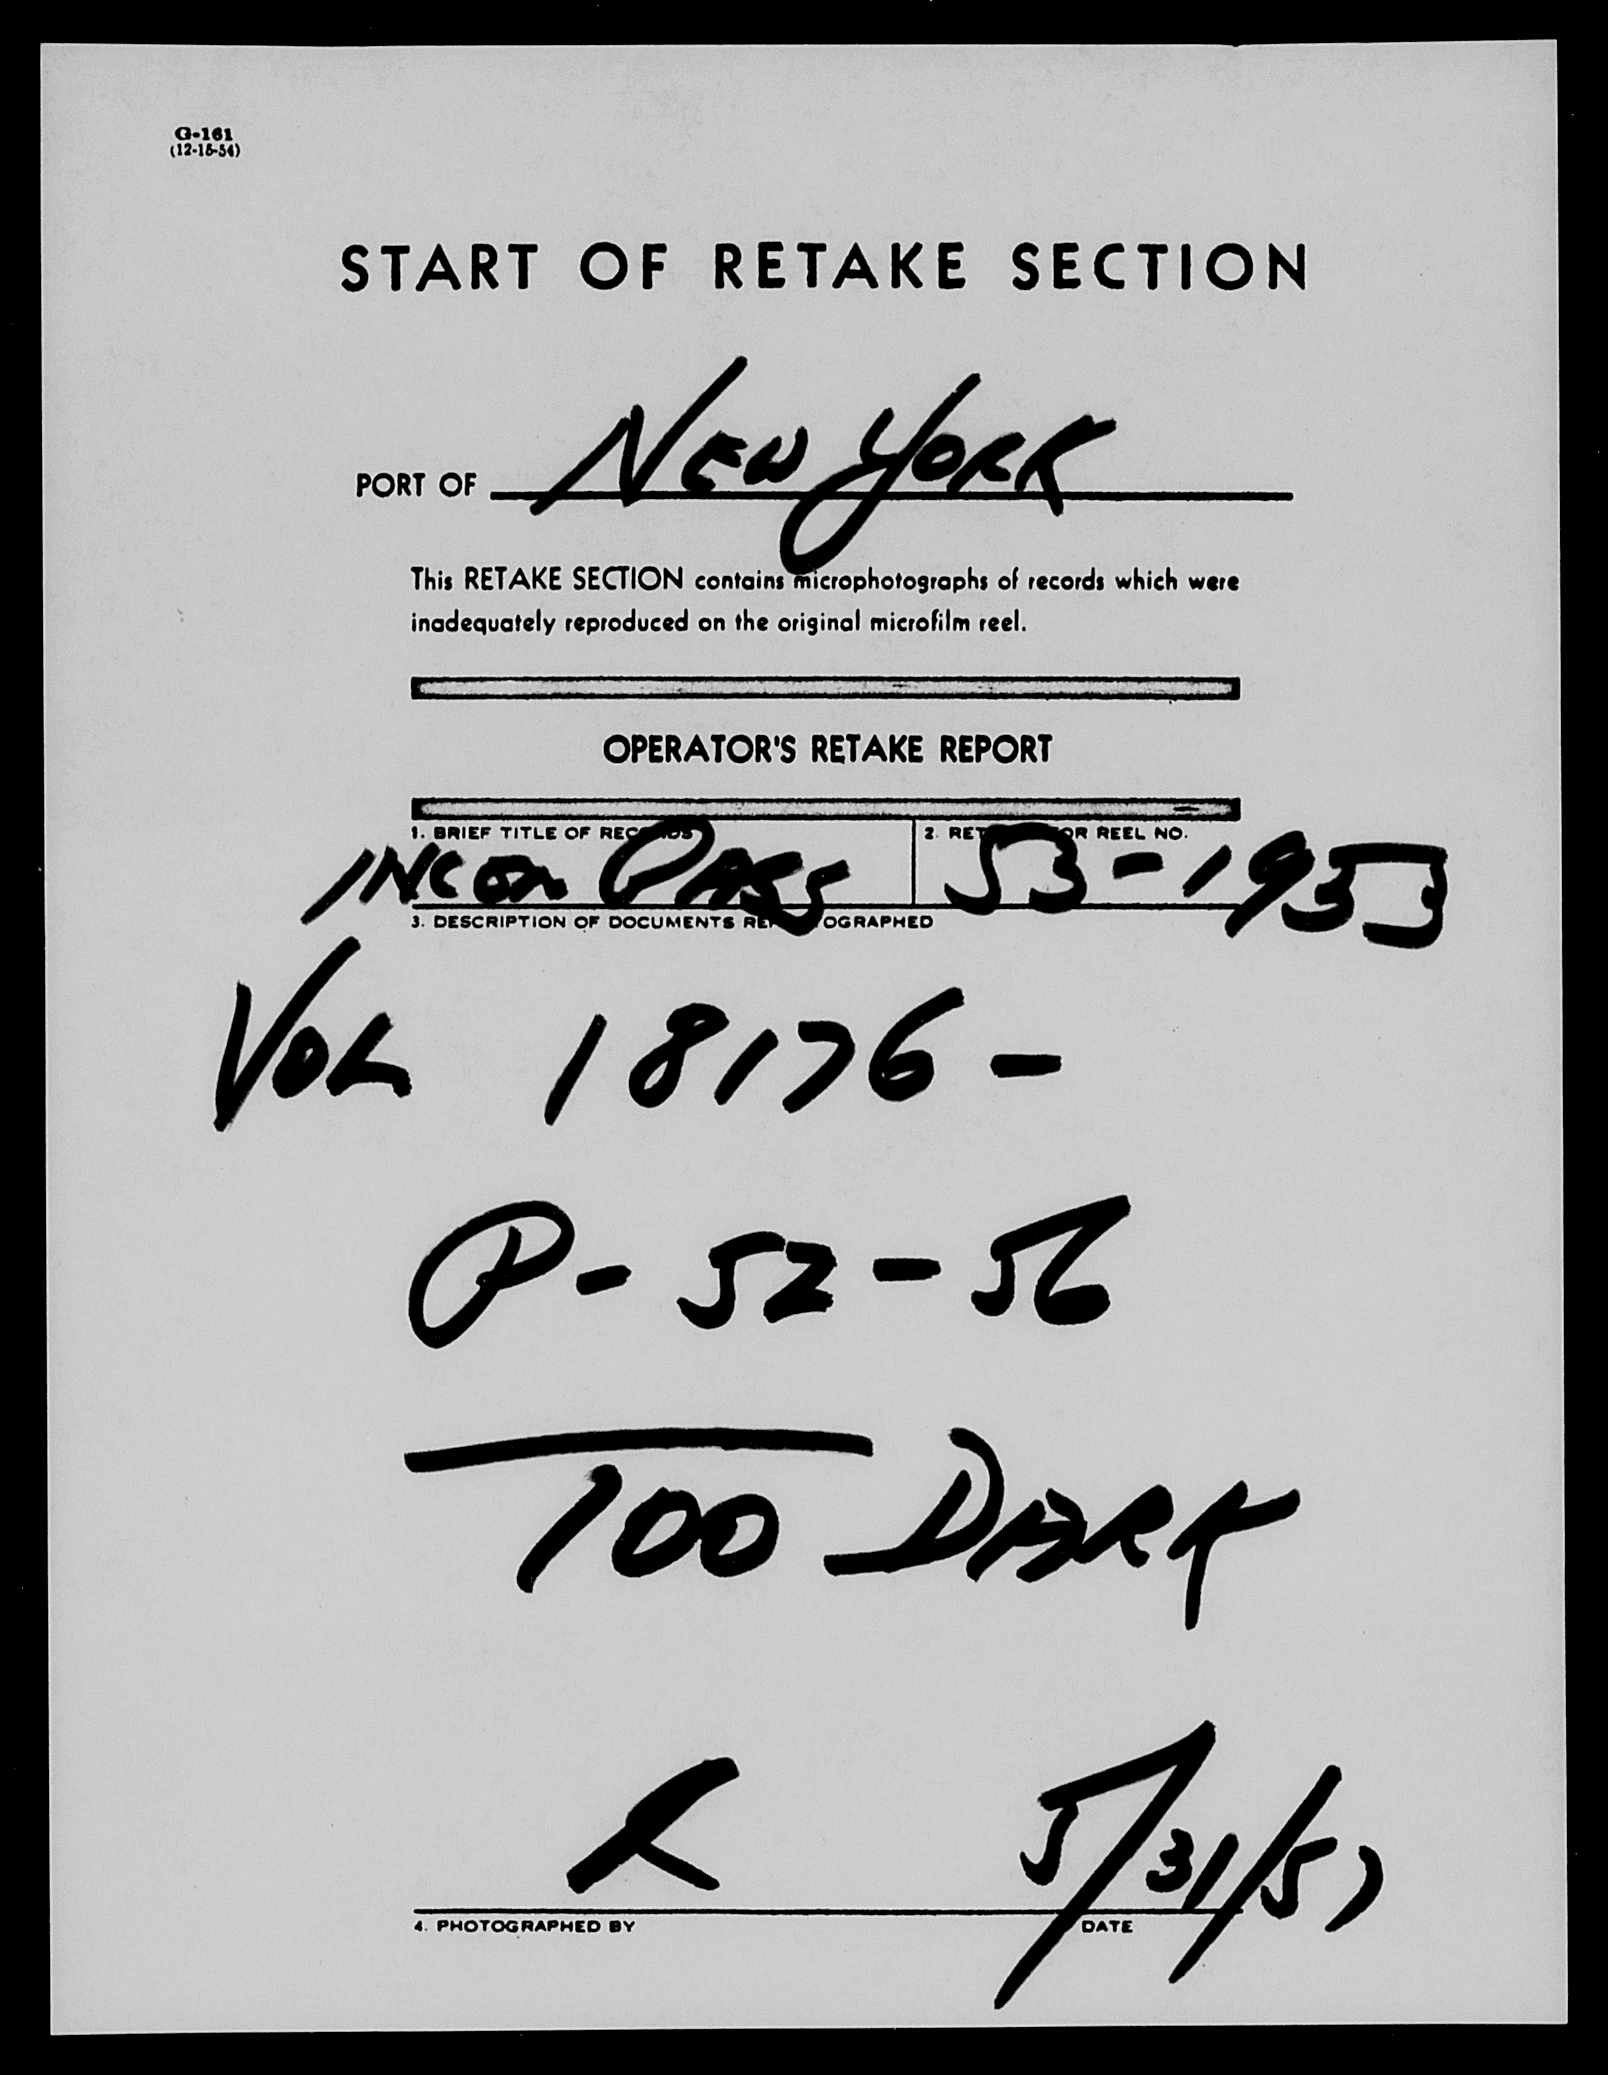 G-161
(12-15-54)
START OF RETAKE SECTION
PORT OF NEW YORK
This RETAKE SECTION contains microphotographs of records which were
inadequately reproduced on the original microfilm reel.
OPERATOR'S RETAKE REPORT
1. BRIEF TITLE OF RECORDS
2. RETAKES FOR REEL NO.
INCOM PASS 53-1953
3. DESCRIPTION OF DOCUMENTS REPHOTOGRAPHED
VOL 18176-
P-52-56
TOO DARK
5/31/57
4. PHOTOGRAPHED BY
DATE